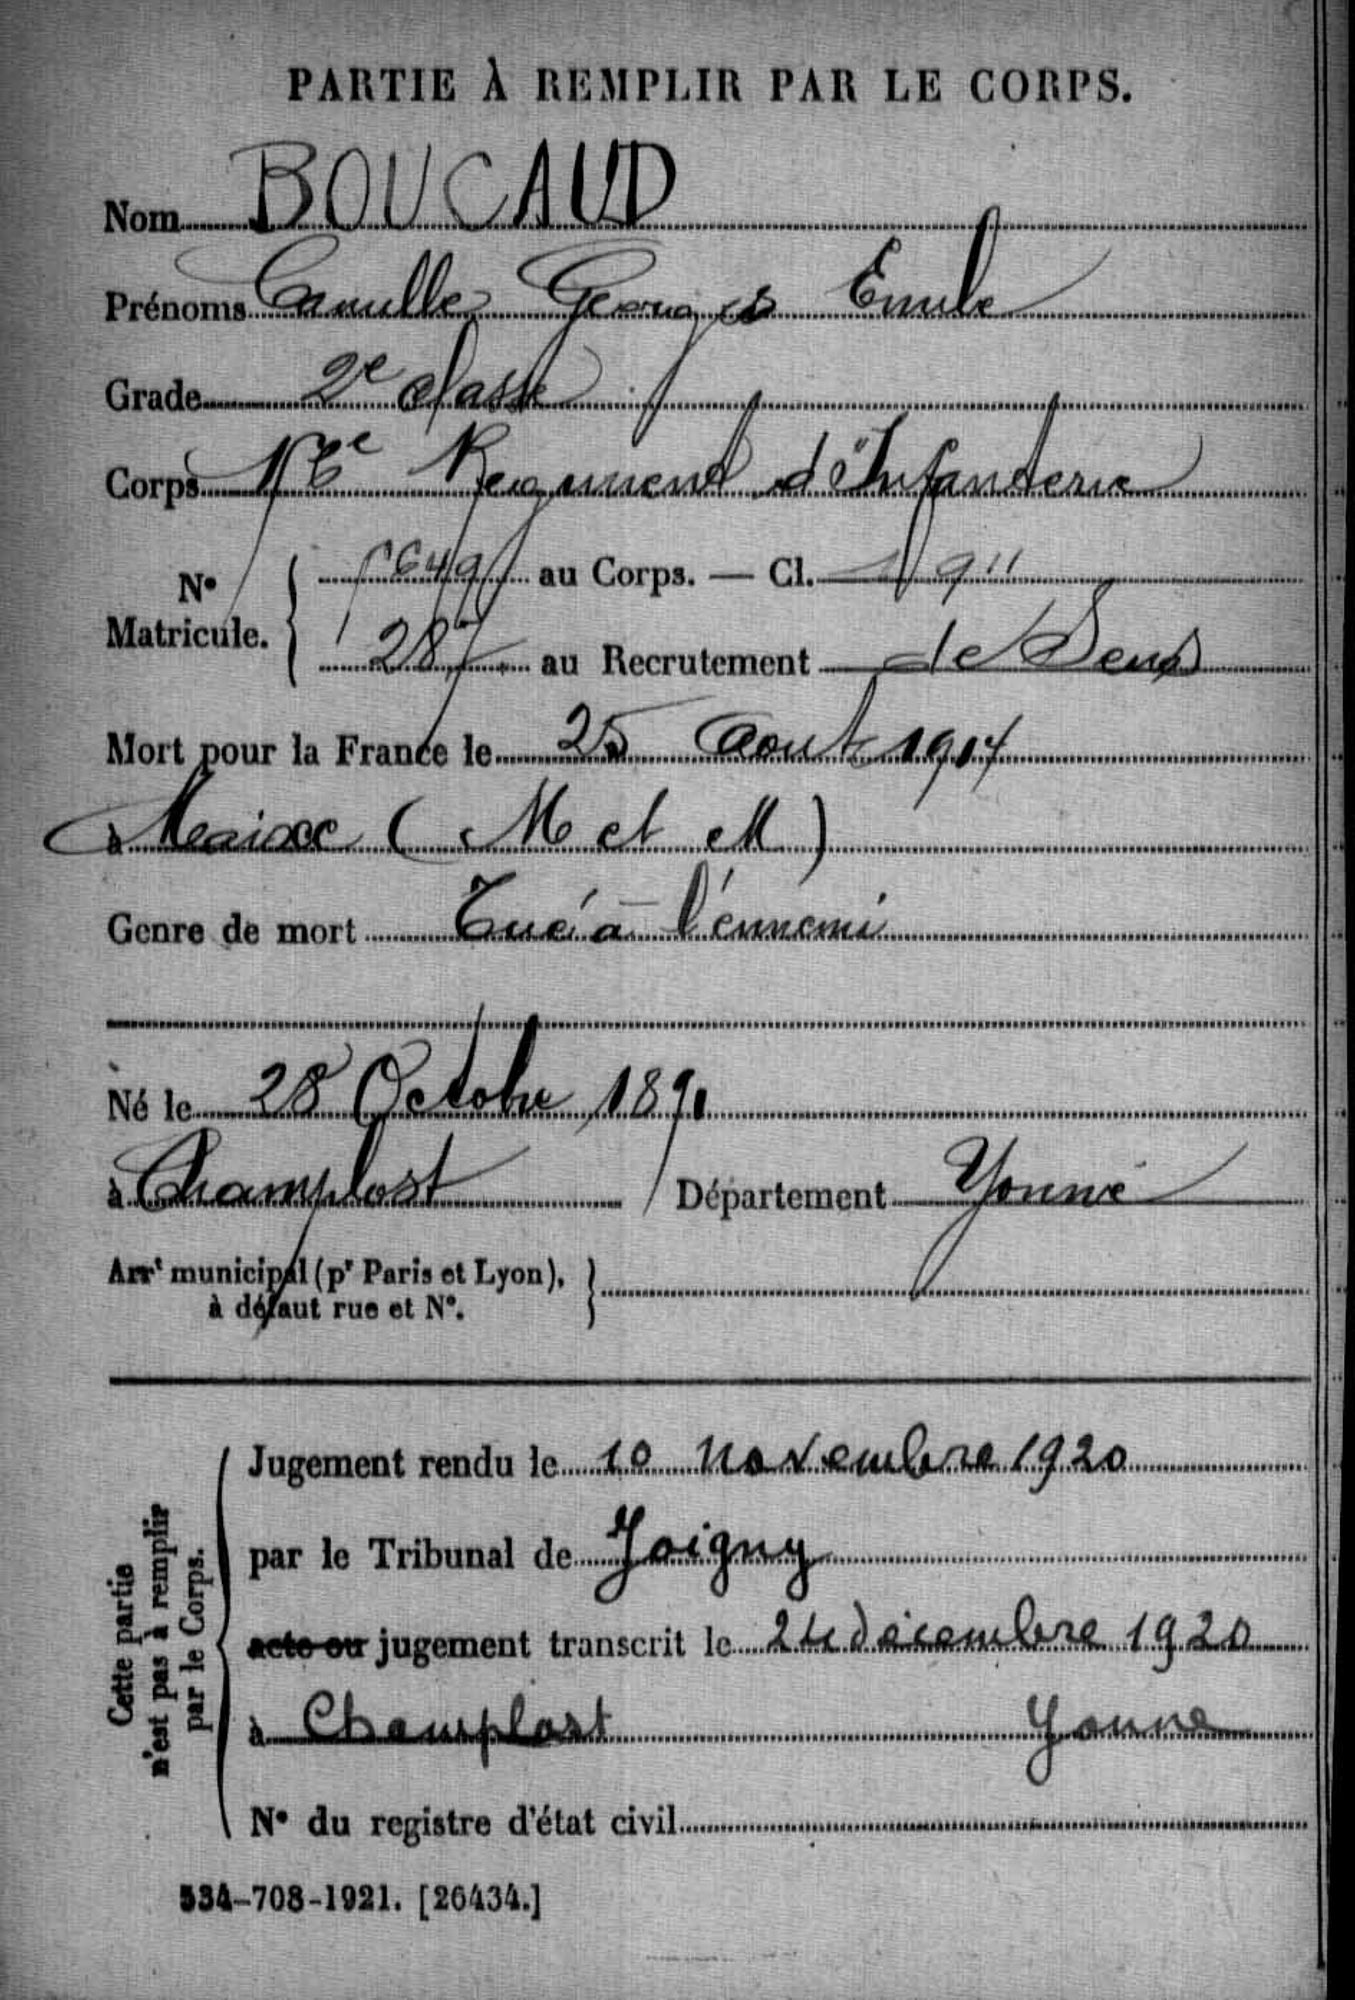 PARTIE À REMPLIR PAR LE CORPS.
Nom BOUCAUD
Prénoms Camille Georges Emile
Grade 2e classe
Corps Regiment d'Infanterie
N° Matricule. au Corps. — Cl. 1911
287 au Recrutement de Sens
Mort pour la France le 25 Aout 1914
à Maixe (M et M)
Genre de mort Tué à l'ennemi
Né le 28 Octobre 1891
à Champlost Département Yonne
Arrt municipal (pr Paris et Lyon),
à défaut rue et N°.
Cette partie
n'est pas à remplir
par le Corps.
Jugement rendu le 10 novembre 1920
par le Tribunal de Joigny
acte ou jugement transcrit le 24 décembre 1920
à Champlost Yonne
N° du registre d'état civil
534-708-1921. [26434.]